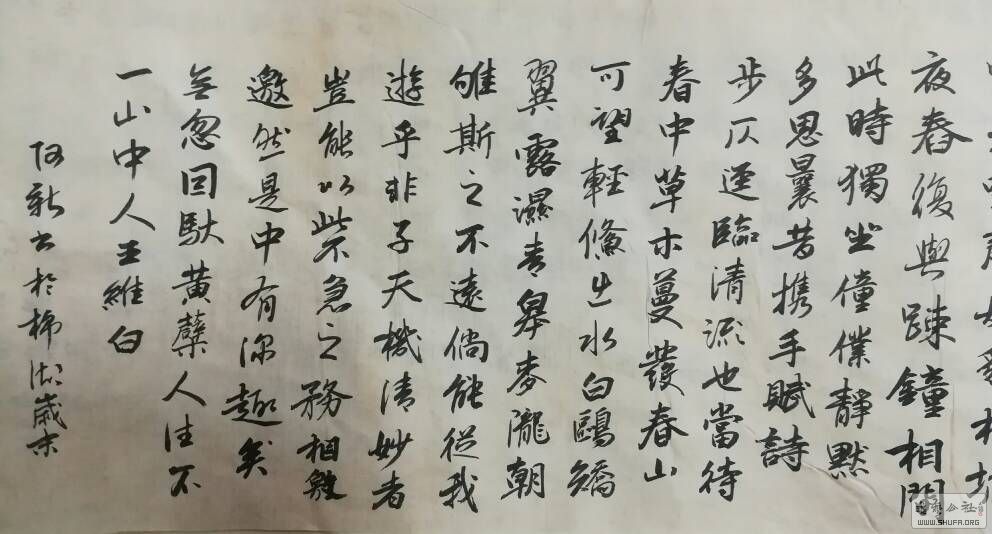 夜舂復與踈鐘相間
此時獨坐僮僕靜默
多思曩昔携手賦詩
步仄逕臨清流也當待
春中草木蔓發春山
可望輕鯈出水白鷗矯
翼露濕青皋麥隴朝
雊斯之不遠倘能從我
遊乎非子天機清妙者
豈能以此不急之務相
邀然是中有深趣矣
無忽因馱黄蘗人往不
一山中人王維白
阿新書於湖歲末
WWW.SHUFA.ORG